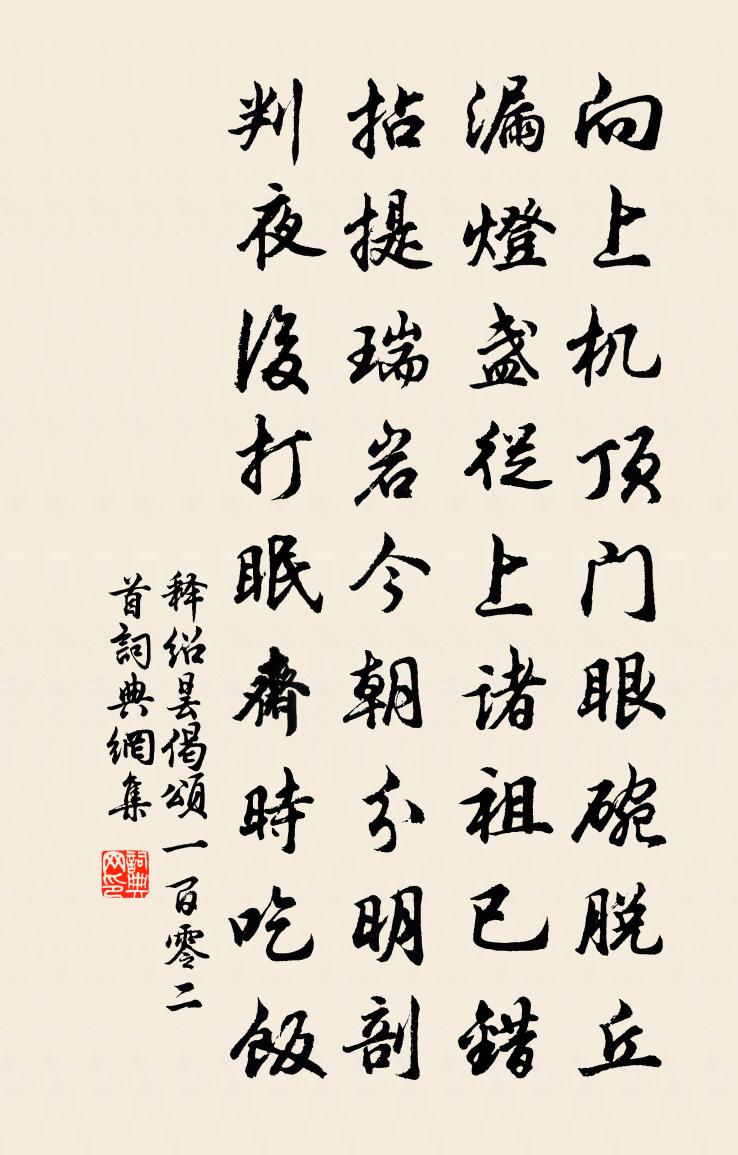 向上机顶门眼碗脱丘
漏燈盏從上诸祖已錯
拈提瑞岩今朝分明剖
判夜後打眠齋時吃飯
释绍昙偈頌一百零二
首詞典網集
詞典网印